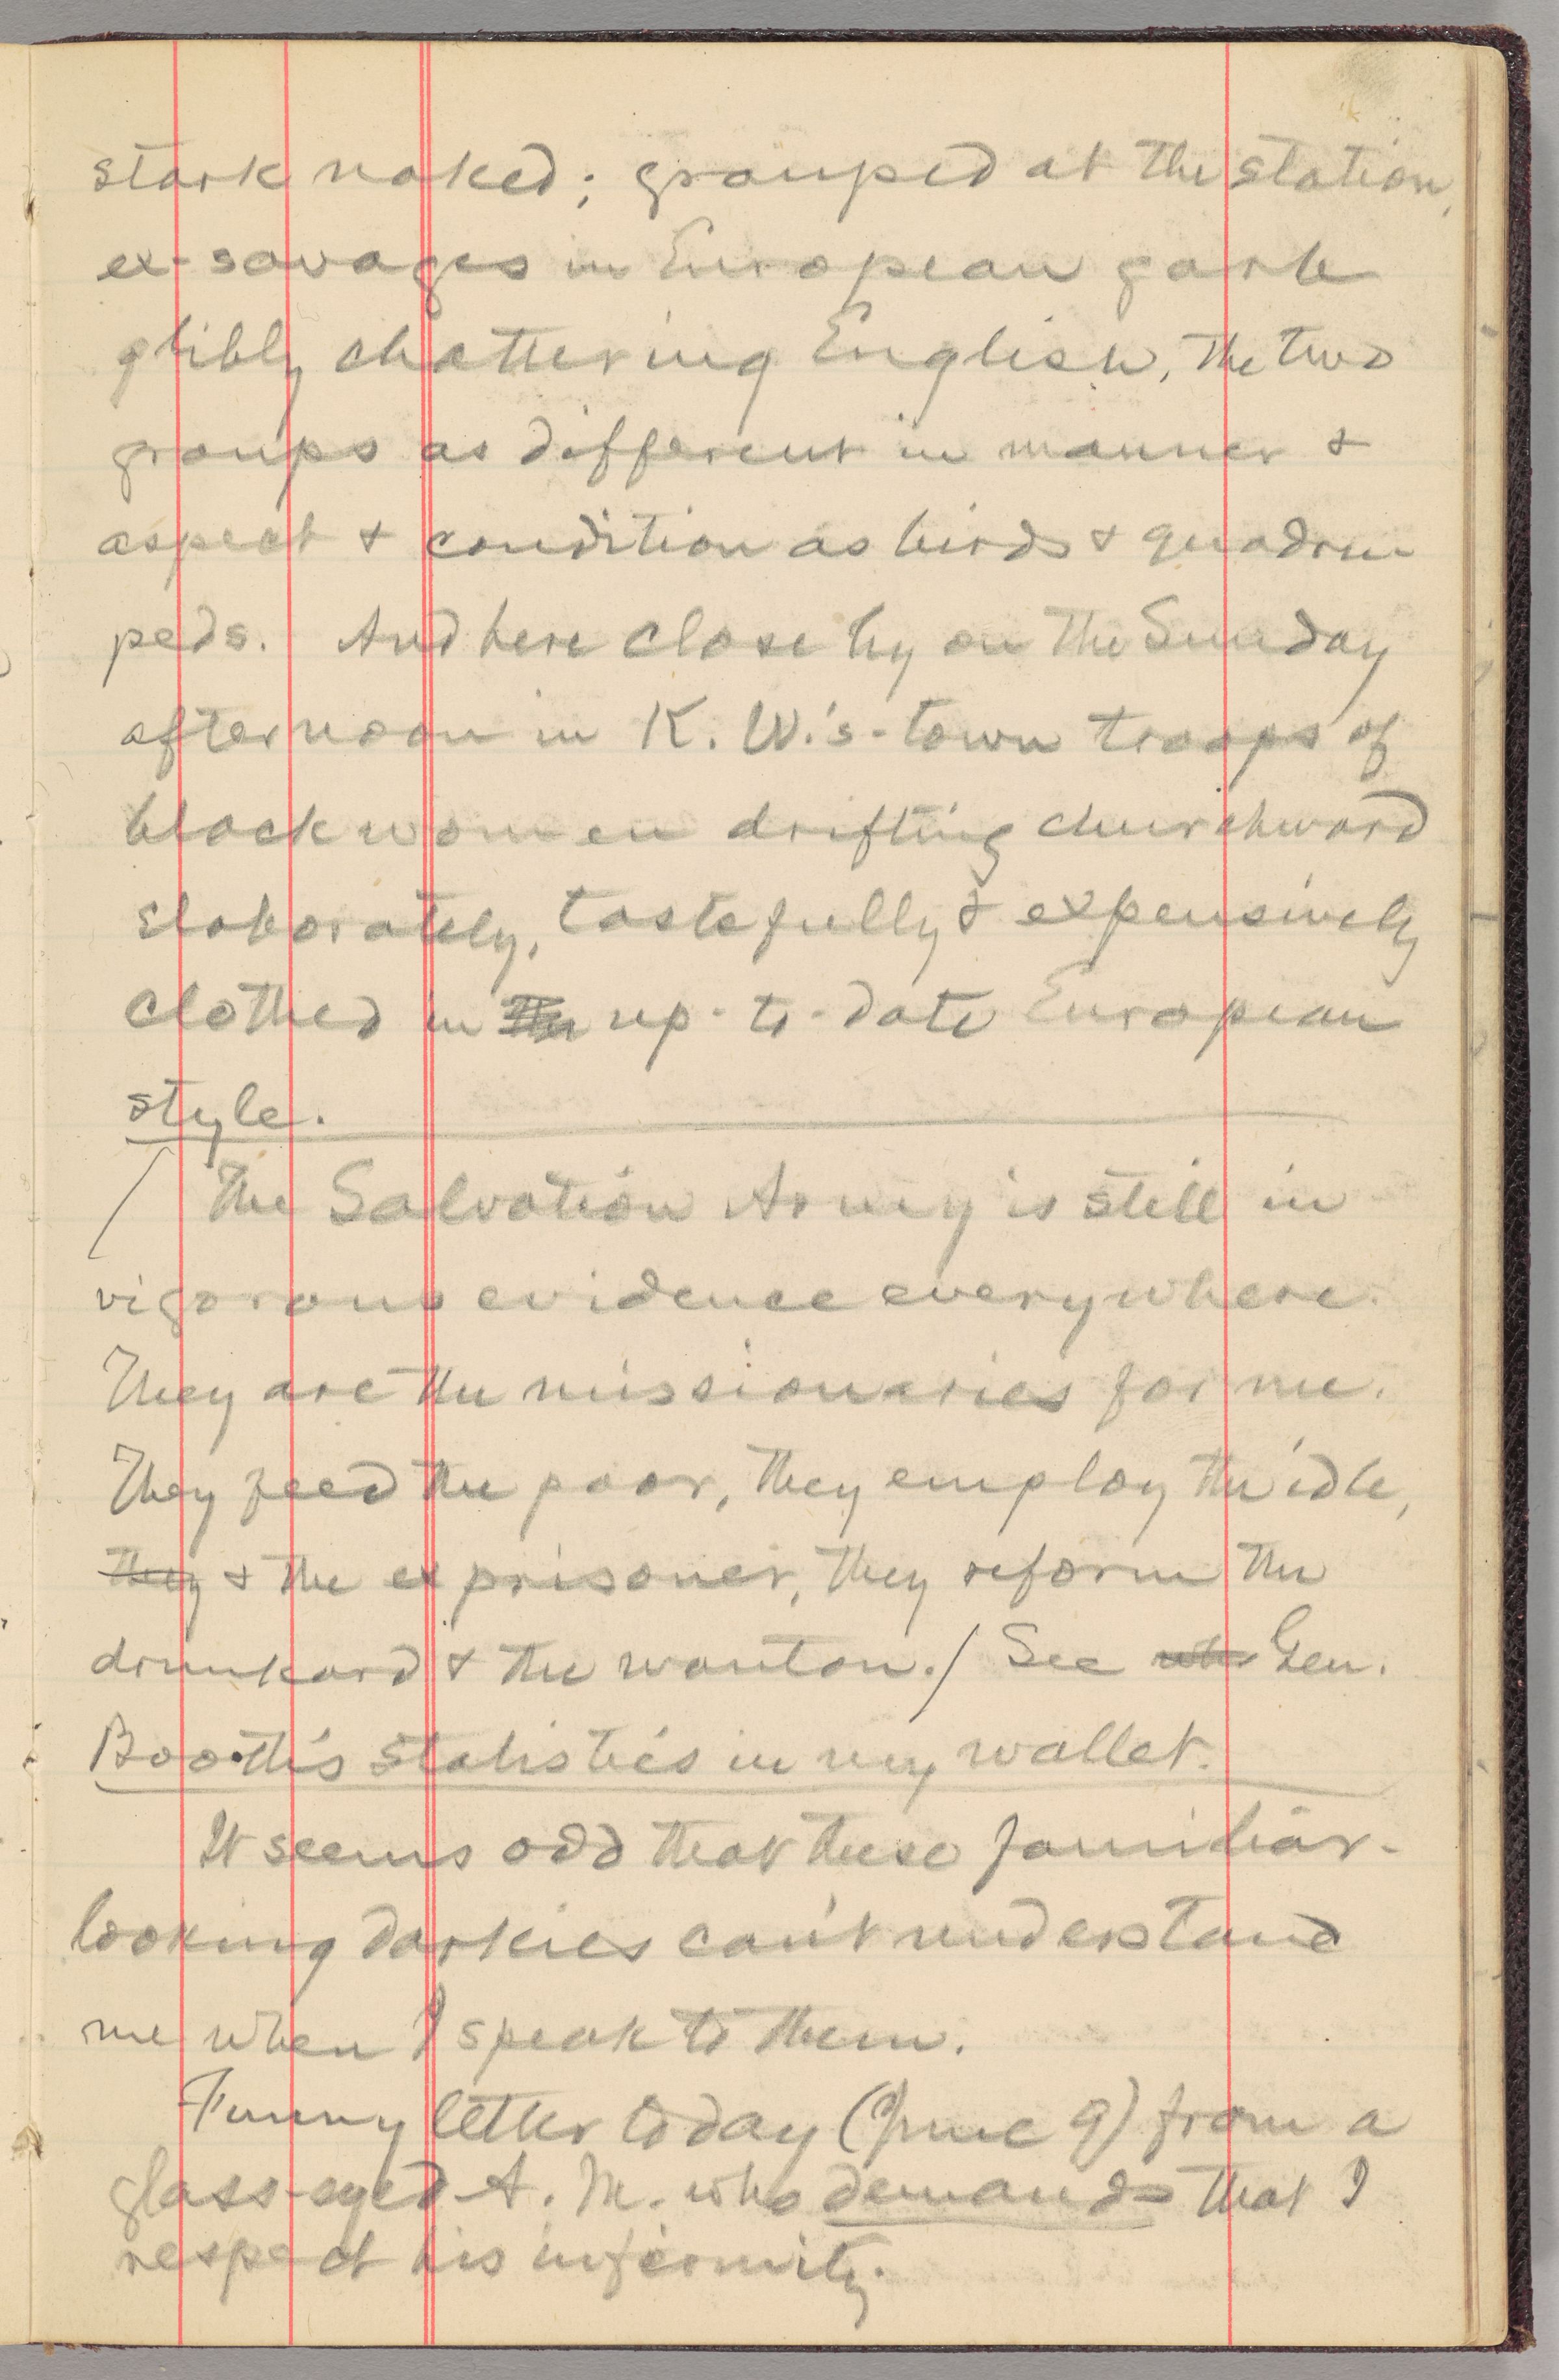 stark naked; grouped at the station,
ex-savages in European garb
glibly chattering English, the two
groups as different in manner &
aspect & condition as birds & quadru
peds. And here close by on the Sunday
afternoon in K. W.'s-town troops of
black women drifting churchward
elaborately, tastefully & expensively
clothed in the up-to-date European
style.
/ The Salvation Army is still in
vigorous evidence everywhere.
They are the missionaries for me.
They feed the poor, they employ the idle,
they & the ex prisoner, they reform the
drunkard & the wanton. / See Gen.
Booth's statistics in my wallet.
It seems odd that these familiar-
looking darkies can't understand
me when I speak to them.
Funny letter today (June 9) from a
glass-eyed A. M. who demands that I
respect his infirmity.